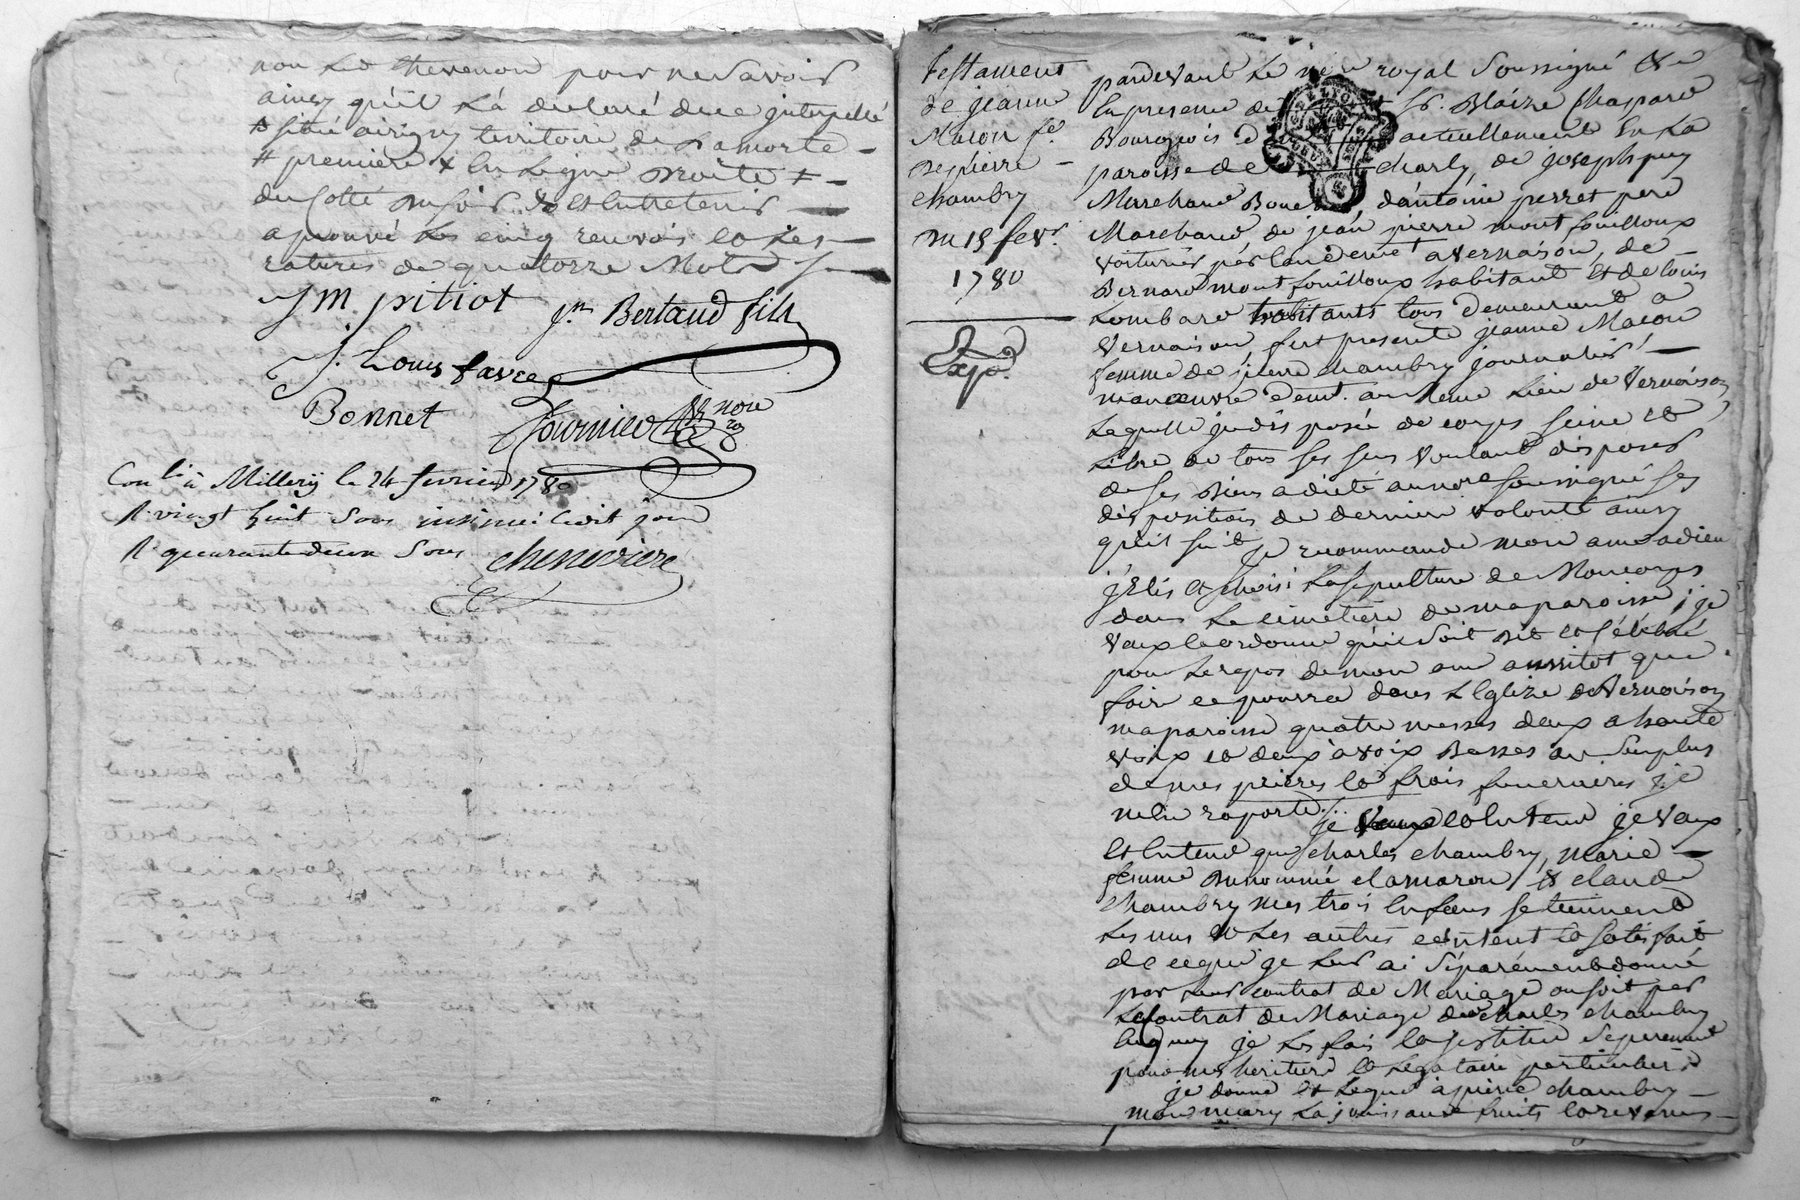 non led thevenon pour ne savoir
ainsy qu'il l'a declaré due jnterpellé
situé airigny territoire de Lamorte
# premiere x en ligne droite ≠
du Cotté du soir & et Entretenir
aprouvé les cinq renvois et les
ratures de quatorze Mots
J M. pitiot jn Bertaud fils
J. Louis favre
Bonnet fournier nore
Conlé à Millery le 24 fevrier 1780
R vingt huit sous insinué Ledit jour
R quarante deux sous cheneviere
testament
de jeanne
Macon fe
de pierre
chambry
du 15 fevr.
1780
Expo.
pardevant Le nre royal soussigné &
En presence de sr. Blaize Chapard
Bourgeois d actuellement En La
paroisse de charly, de joseph puy
Marchand Bouc d'antoine perret pere
Marchand de jean pierre montfouilloux
voiturier par Eau demt a vernaison, de
Bernard montfouilloux habitant Et de Louis
Lombard habitants tous demeurant a
Vernaison, fut presente jeanne Macon
femme de pierre chambry journalier
manœuvre demt. au Meme Lieu de Vernaison
Laquelle jndisposée de corps seine et
Libre de tous ses sens voulant disposer
de ses Biens a dicté au nore soussigné ses
dispositions de derniere volonté ainsy
qu'il suit je recommande mon ame a dieu
j'Elis et choisi La sepulture de Mon corps
dans Le cimetiere de ma paroisse, je
veux et ordonne qu'il soit dit et Célébré
pour Le repos de mon ame aussitot que
faire ce pourra dans L'Eglize de Vernaison
ma paroisse quatre messes deux a haute
voix et deux à voix Basses au surplus
de mes prieres et frois funeraires je
m'en raporte
je veux et Entend je veux
Et Entend que charles chambry, marie
femme du nommé clamaron, & claude
chambry mes trois Enfans se tiennent
Les uns et Les autres content et satisfait
de ce que je Leur ai séparément donné
par Leur contrat de Mariage ou soit par
Le Contrat de Mariage dud charles chambry
En quoy je Les fais Et jnstitue separement
pour mes heritiers et Legataire particuliers
je donne Et Legue à pierre chambry
mon mary La jouissance fruits et revenus